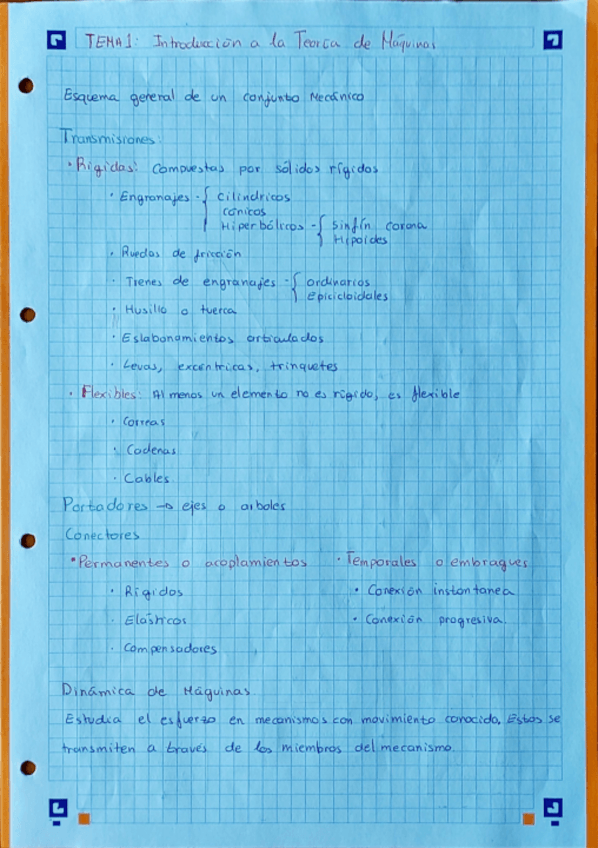 TEMA 1: Introducción a la Teoría de Máquinas
Esquema general de un conjunto Mecánico
Transmisiones:
· Rígidas: Compuestas por sólidos rígidos
· Engranajes - { Cilíndricos
Cónicos
Hiperbólicos - { Sinfín corona
Hipoides
· Ruedas de fricción
· Trenes de engranajes - { ordinarios
Epicicloidales
· Husillo o tuerca
· Eslabonamientos articulados
· Levas, excéntricas, trinquetes
· Flexibles: Al menos un elemento no es rígido, es flexible
· Correas
· Cadenas
· Cables
Portadores → ejes o arboles
Conectores
· Permanentes o acoplamientos · Temporales o embragues
· Rígidos · Conexión instantanea
· Elásticos · Conexión progresiva.
· Compensadores
Dinámica de Máquinas
Estudia el esfuerzo en mecanismos con movimiento conocido, Estos se
transmiten a través de los miembros del mecanismo.